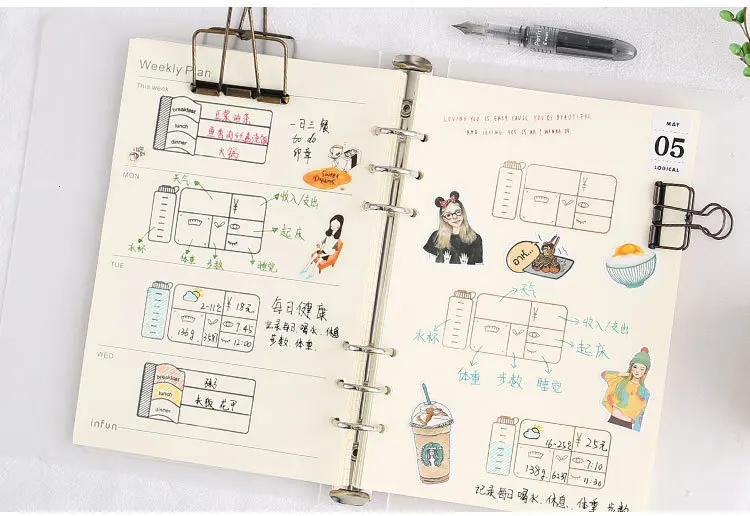 Weekly Plan
This week
breakfast
lunch
dinner
豆浆 油条
鱼香肉丝盖浇饭
火锅
一日三餐
to do
印章
Sweet Dreams
MON
天气
¥
收入/支出
起床
水杯
体重
步数
睡觉
TUE
2-11℃
¥ 18元
7:45
136g
3581
12:00
每日健康
记录每日喝水、休息
步数、体重.
WED
breakfast
lunch
dinner
粥
米饭 花甲
infun
LOVING YOU IS EASY CAUSE YOU'RE BEAUTIFUL
MAY
05
LOGICAL
¥
天气
¥
收入/支出
起床
水杯
体重
步数
睡觉
16-25℃
¥ 25元
7:10
138g
6237
11:30
记录每日喝水、休息、体重 步数